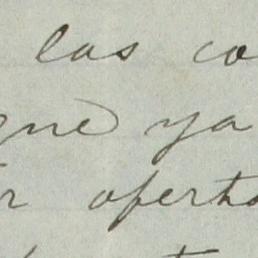 las co
que ya
r oferta